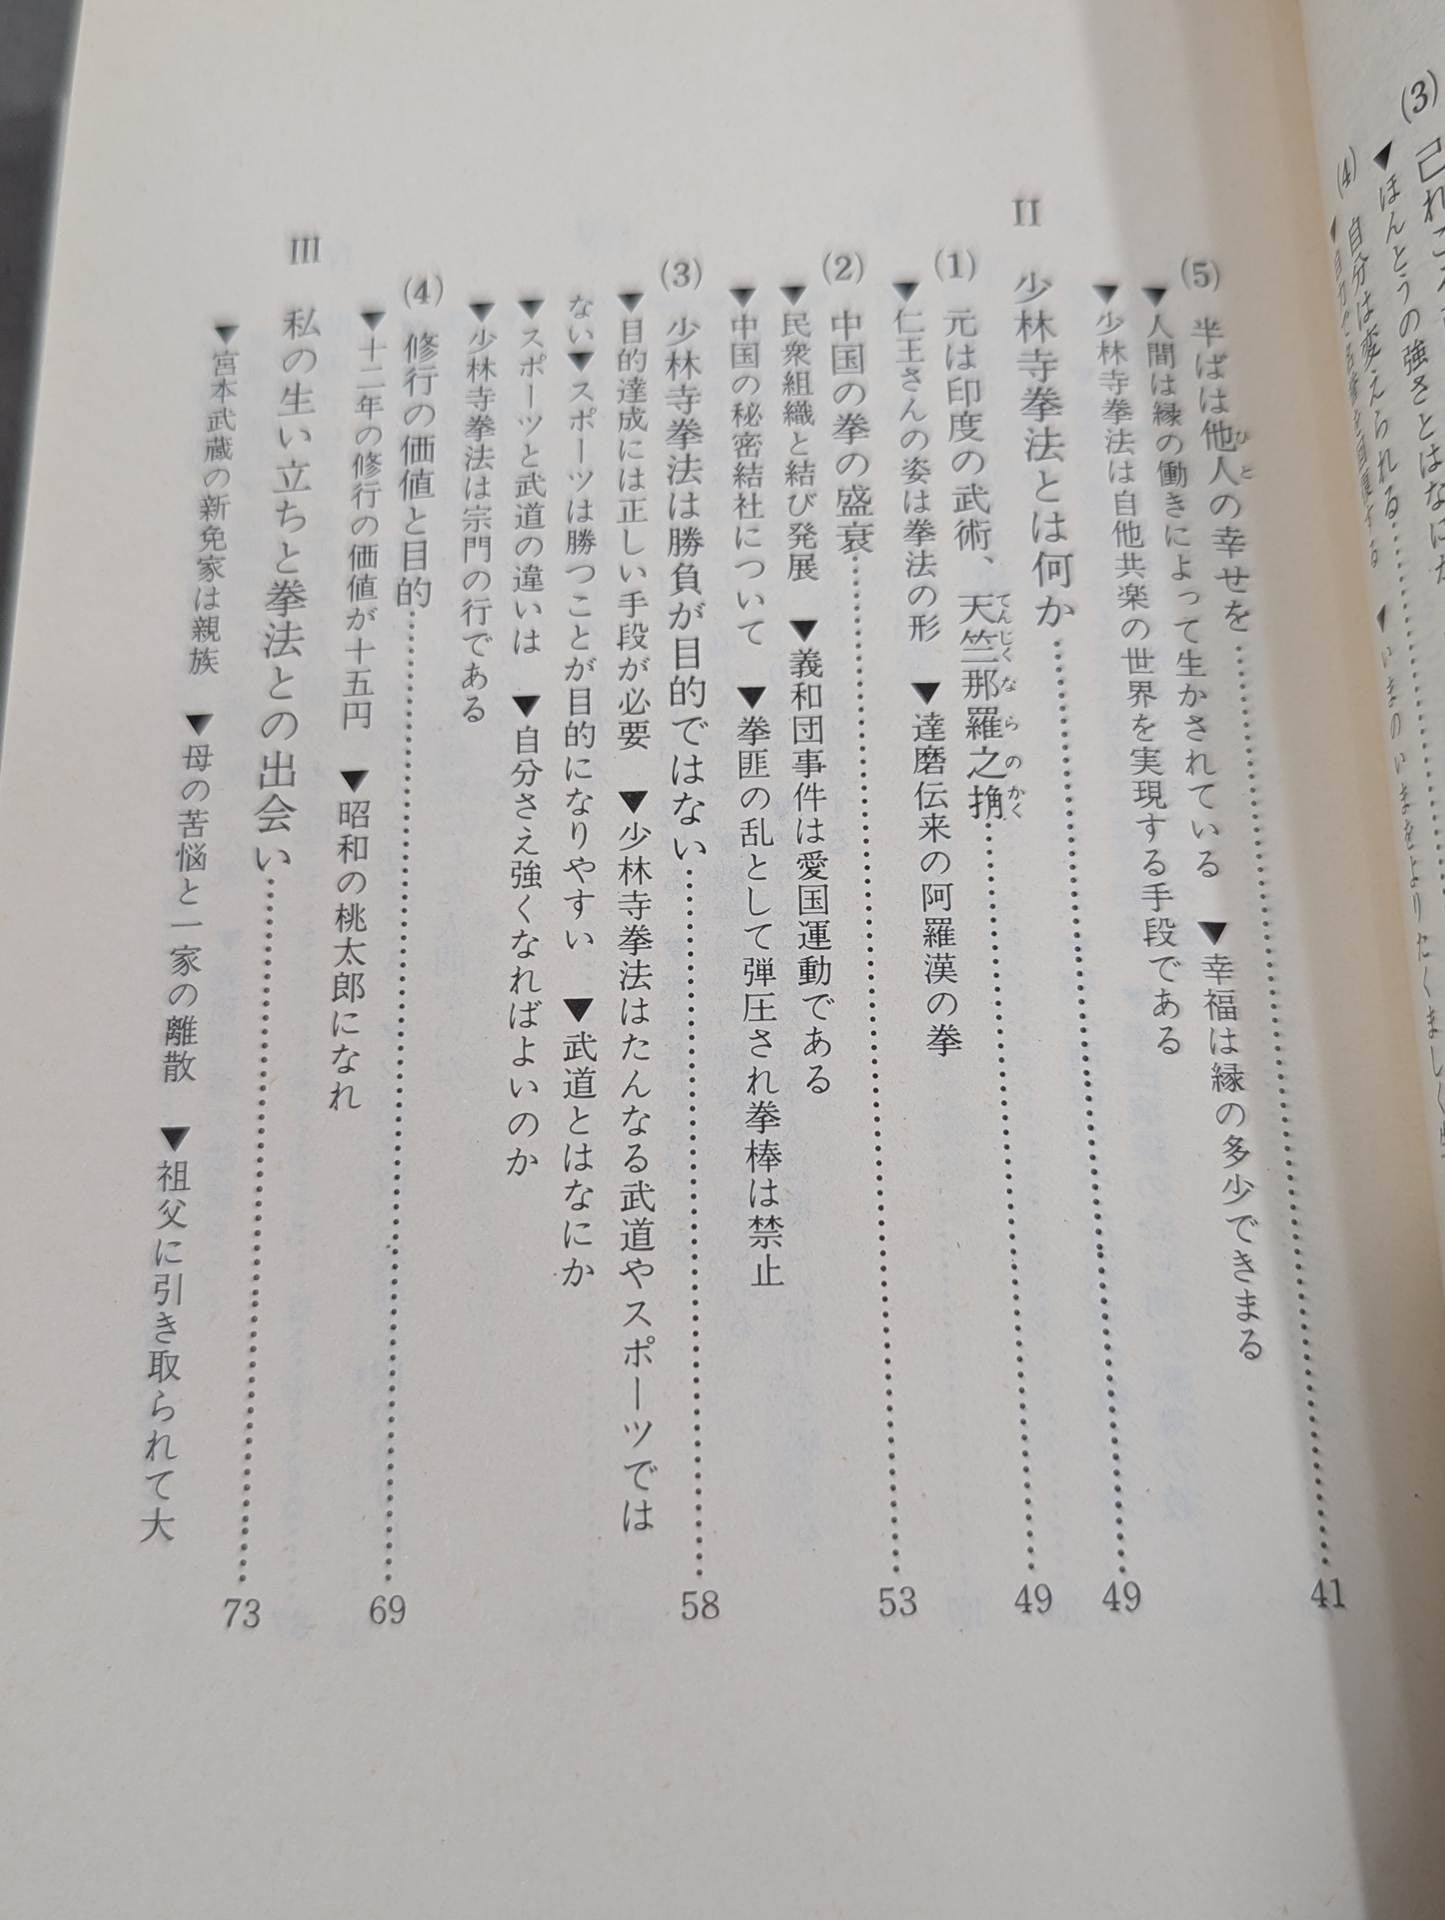 (3) 己れこそ
▼ほんとうの強さとはなにか
(4) 自分は変えられる……
(5) 半ばは他人の幸せを……41
▼人間は縁の働きによって生かされている ▼幸福は縁の多少できまる
▼少林寺拳法は自他共楽の世界を実現する手段である
II 少林寺拳法とは何か……49
(1) 元は印度の武術、天竺那羅之捔……49
▼仁王さんの姿は拳法の形 ▼達磨伝来の阿羅漢の拳
(2) 中国の拳の盛衰……53
▼民衆組織と結び発展 ▼義和団事件は愛国運動である
▼中国の秘密結社について ▼拳匪の乱として弾圧され拳棒は禁止
(3) 少林寺拳法は勝負が目的ではない……58
▼目的達成には正しい手段が必要 ▼少林寺拳法はたんなる武道やスポーツでは
ない▼スポーツは勝つことが目的になりやすい ▼武道とはなにか
▼スポーツと武道の違いは ▼自分さえ強くなればよいのか
▼少林寺拳法は宗門の行である
(4) 修行の価値と目的……69
▼十二年の修行の価値が十五円 ▼昭和の桃太郎になれ
III 私の生い立ちと拳法との出会い……73
▼宮本武蔵の新免家は親族 ▼母の苦悩と一家の離散 ▼祖父に引き取られて大